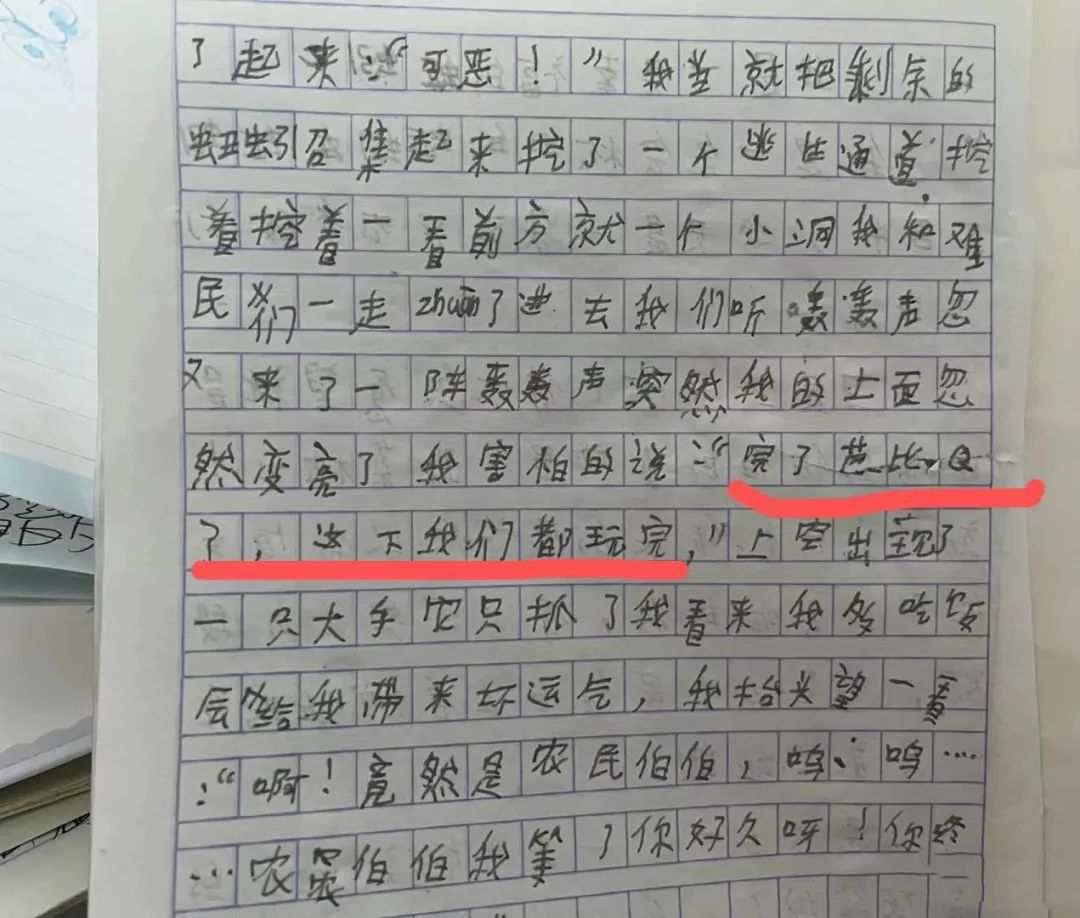 了起来:“可恶!”我当就把剩余的
蚯蚓召集起来挖了一个逃生通道,挖
着挖着一看前方就一个小洞我和难
民们一走zhuan了进去我们听轰轰声忽
又来了一阵轰轰声突然我的上面忽
然变亮了我害怕的说:“完了芭比Q
了,这下我们都玩完,”上空出现了
一只大手它只抓了我看来我多吃饭
会给我带来坏运气,我抬头望一看
:“啊!竟然是农民伯伯,呜、呜…
…农民伯伯我等了你好久呀!你终